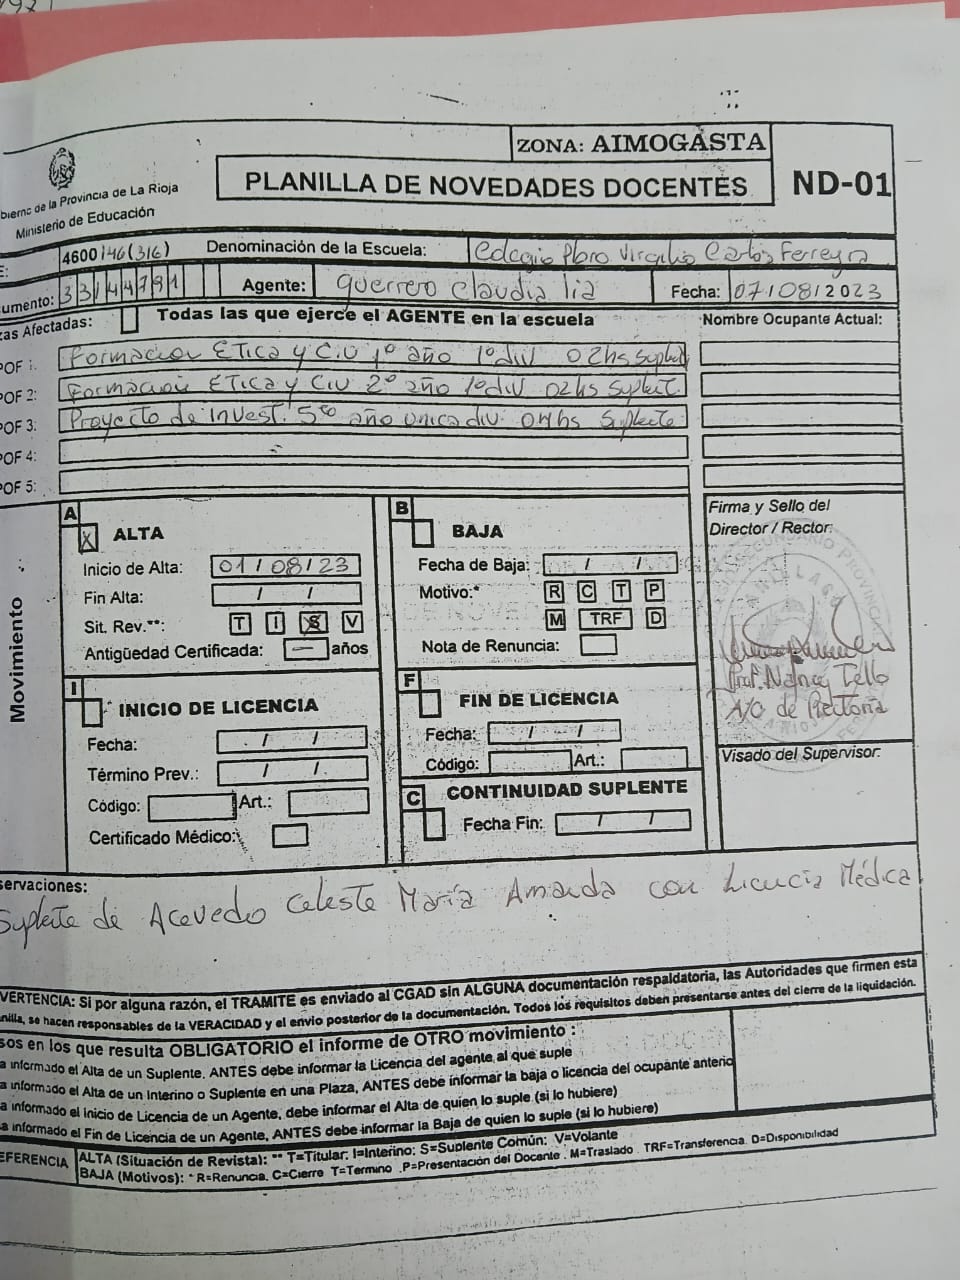 ZONA: AIMOGASTA
PLANILLA DE NOVEDADES DOCENTES
ND-01
bierno de la Provincia de La Rioja
Ministerio de Educación
E: 4600146(316) Denominación de la Escuela: Colegio Pbro Virgilio Carlos Ferreyra
umento: 33144791 Agente: Guerrero Claudia Lia Fecha: 07/08/2023
zas Afectadas: Todas las que ejerce el AGENTE en la escuela Nombre Ocupante Actual:
POF 1: Formacion Etica y Ciu 1º año 1º div 02hs Suplet
POF 2: Formacion Etica y Ciu 2º año 1º div 02hs Suplet.
POF 3: Proyecto de Invest. 5to año unica div. 04hs Suplente
POF 4:
POF 5:
Movimiento
A X ALTA
Inicio de Alta: 01/08/23
Fin Alta: / /
Sit. Rev.**: T I S V
Antigüedad Certificada: — años
B BAJA
Fecha de Baja: / /
Motivo:* R C T P
M TRF D
Nota de Renuncia:
Firma y Sello del
Director / Rector:
Prof. Nancy Tello
A/C de Rectoria
I INICIO DE LICENCIA
Fecha: / /
Término Prev.: / /
Código: Art.:
Certificado Médico:
F FIN DE LICENCIA
Fecha: / /
Código: Art.:
C CONTINUIDAD SUPLENTE
Fecha Fin: / /
Visado del Supervisor:
servaciones:
Suplente de Acevedo Celeste María Amanda con Licencia Médica
VERTENCIA: Si por alguna razón, el TRAMITE es enviado al CGAD sin ALGUNA documentación respaldatoria, las Autoridades que firmen esta
nilla, se hacen responsables de la VERACIDAD y el envio posterior de la documentación. Todos los requisitos deben presentarse antes del cierre de la liquidación.
sos en los que resulta OBLIGATORIO el informe de OTRO movimiento :
a informado el Alta de un Suplente, ANTES debe informar la Licencia del agente al que suple
a informado el Alta de un Interino o Suplente en una Plaza, ANTES debe informar la baja o licencia del ocupante anterio
a informado el Inicio de Licencia de un Agente, debe informar el Alta de quien lo suple (si lo hubiere)
a informado el Fin de Licencia de un Agente, ANTES debe informar la Baja de quien lo suple (si lo hubiere)
EFERENCIA
ALTA (Situación de Revista): ** T=Titular: I=Interino: S=Suplente Común: V=Volante
BAJA (Motivos): * R=Renuncia. C=Cierre T=Termino .P=Presentación del Docente . M=Traslado . TRF=Transferencia. D=Disponibilidad